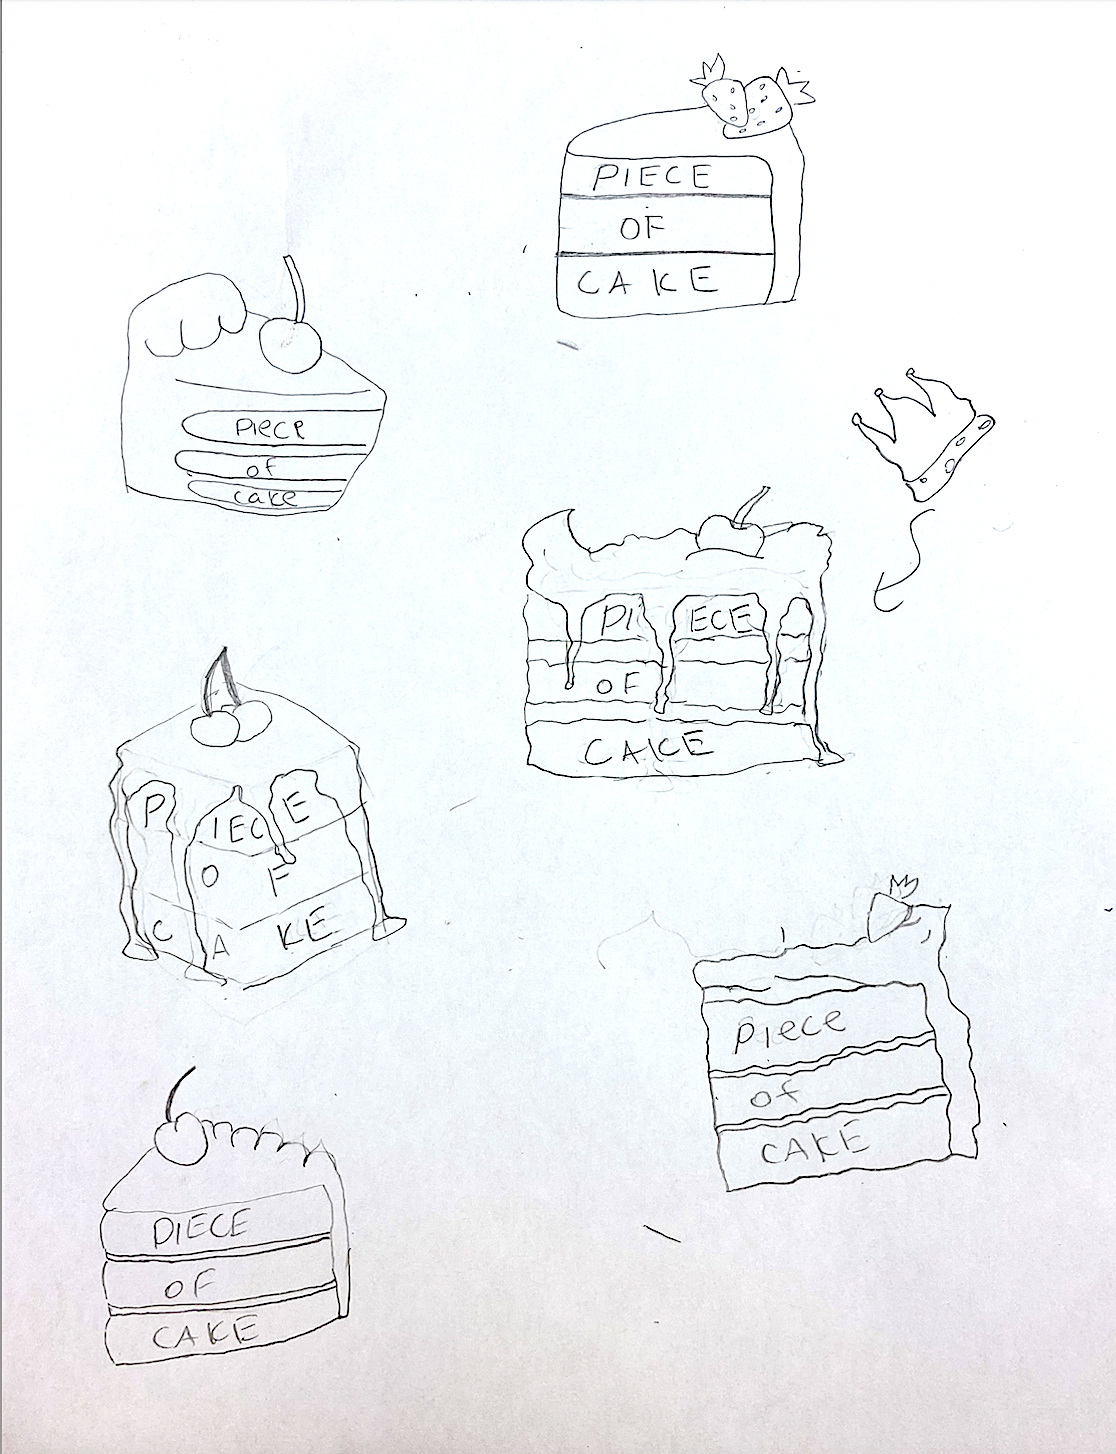 PIECE
OF
CAKE
piece
of
cake
PIECE
OF
CAKE
PIECE
OF
CAKE
piece
of
CAKE
PIECE
OF
CAKE